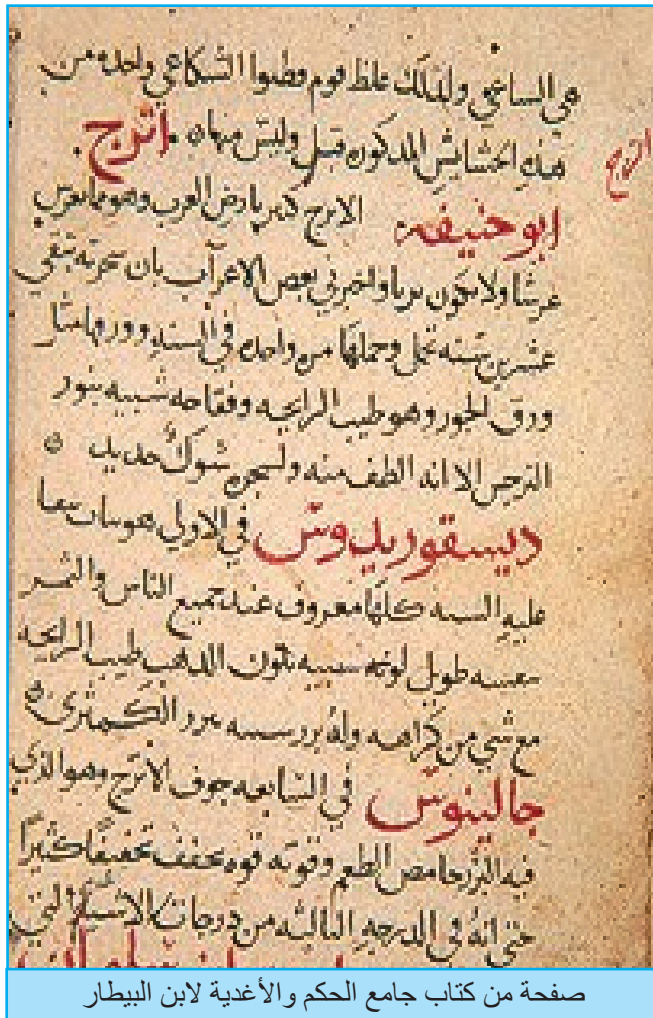 هي الساعي ولذلك غلط قوم وظنوا الشكاعي واحده من
هذه الحشايش المدكوره قبل وليس منها ه اترج .
اترج
ابو حنيفه الاترج كثير بارض العرب وهو مما يغرس
غرسا ولا يكون بريا واخبرني بعض الاعراب بان شجرته تبقي
عشرين سنه تحمل وحملها مره واحده في السنه وورقها مثل
ورق الجوز وهو طيب الرايحه وفقاحه شبيه بنور
النرجس الا انه الطف منه ولشجره شوك حديد ه
ديسقوريدوس في الاولي هو نبات تبقا
عليه السنه كلها معروف عند جميع الناس والثمر
نفسه طويل لونه شبيه بلون الذهب طيب الرايحه
مع شي من كراهه وله بزر شبيه ببزر الكمثري ه
جالينوس في السابعه جوف الاترج وهو الذي
فيه البزر حامض الطعم وقوته قوه تجفف تجفيفا كثيرا
حتي انه في الدرجه الثالثه من درجات الاشيا التي
صفحة من كتاب جامع الحكم والأغدية لابن البيطار